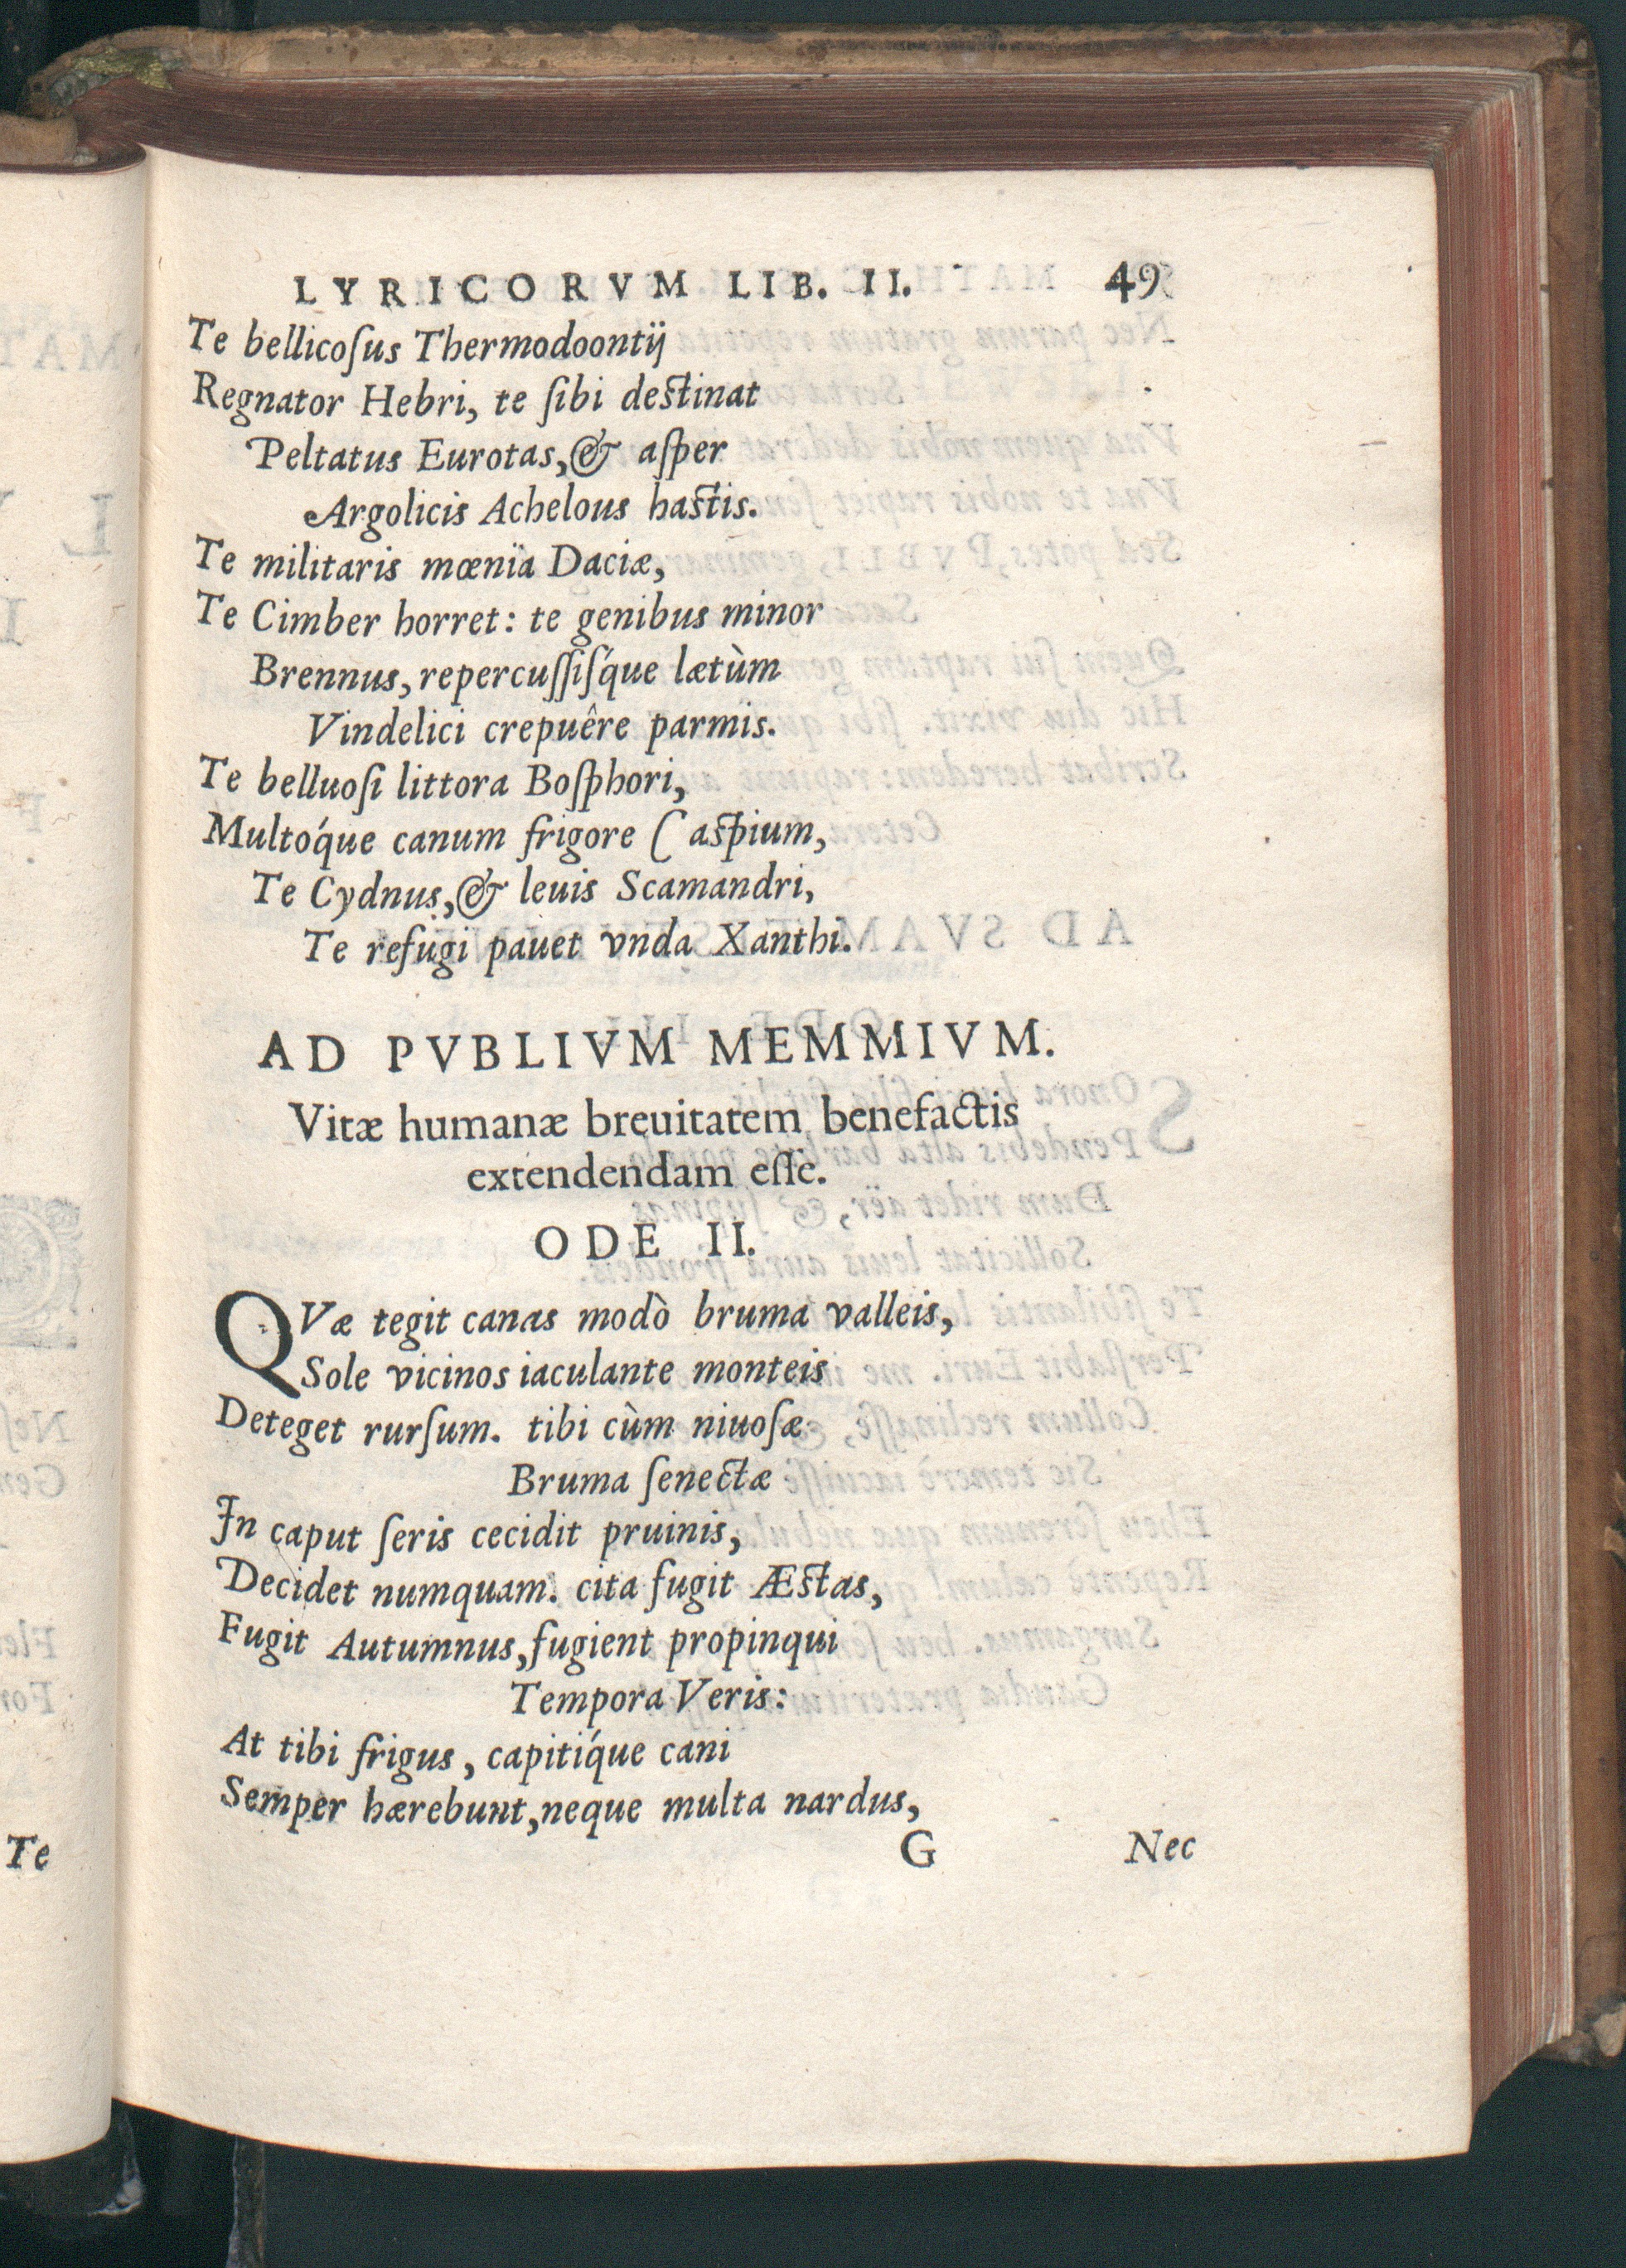 LYRICORVM LIB. II. 49
Te bellicoſus Thermodoontij
Regnator Hebri, te ſibi destinat
Peltatus Eurotas, & aſper
Argolicis Achelous hastis.
Te militaris mœnïa Daciæ,
Te Cimber horret: te genibus minor
Brennus, repercuſſiſq́ue lætùm
Vindelici crepuêre parmis.
Te belluoſi littora Boſphori,
Multoq́ue canum frigore Caspium,
Te Cydnus, & leuis Scamandri,
Te refugi pauet vnda Xanthi.
AD PVBLIVM MEMMIVM.
Vitæ humanæ breuitatem benefactis
extendendam eſſe.
ODE II.
QVæ tegit canas modò bruma valleis,
Sole vicinos iaculante monteis
Deteget rurſum. tibi cùm niuoſæ
Bruma ſenectæ
In caput ſeris cecidit pruinis,
Decidet numquam. cita fugit Æstas,
Fugit Autumnus, fugient propinqui
Tempora Veris:
At tibi frigus, capitiq́ue cani
Semper hærebunt, neque multa nardus,
G Nec
Te